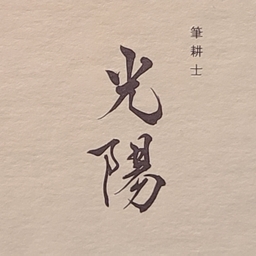 筆耕士
光陽